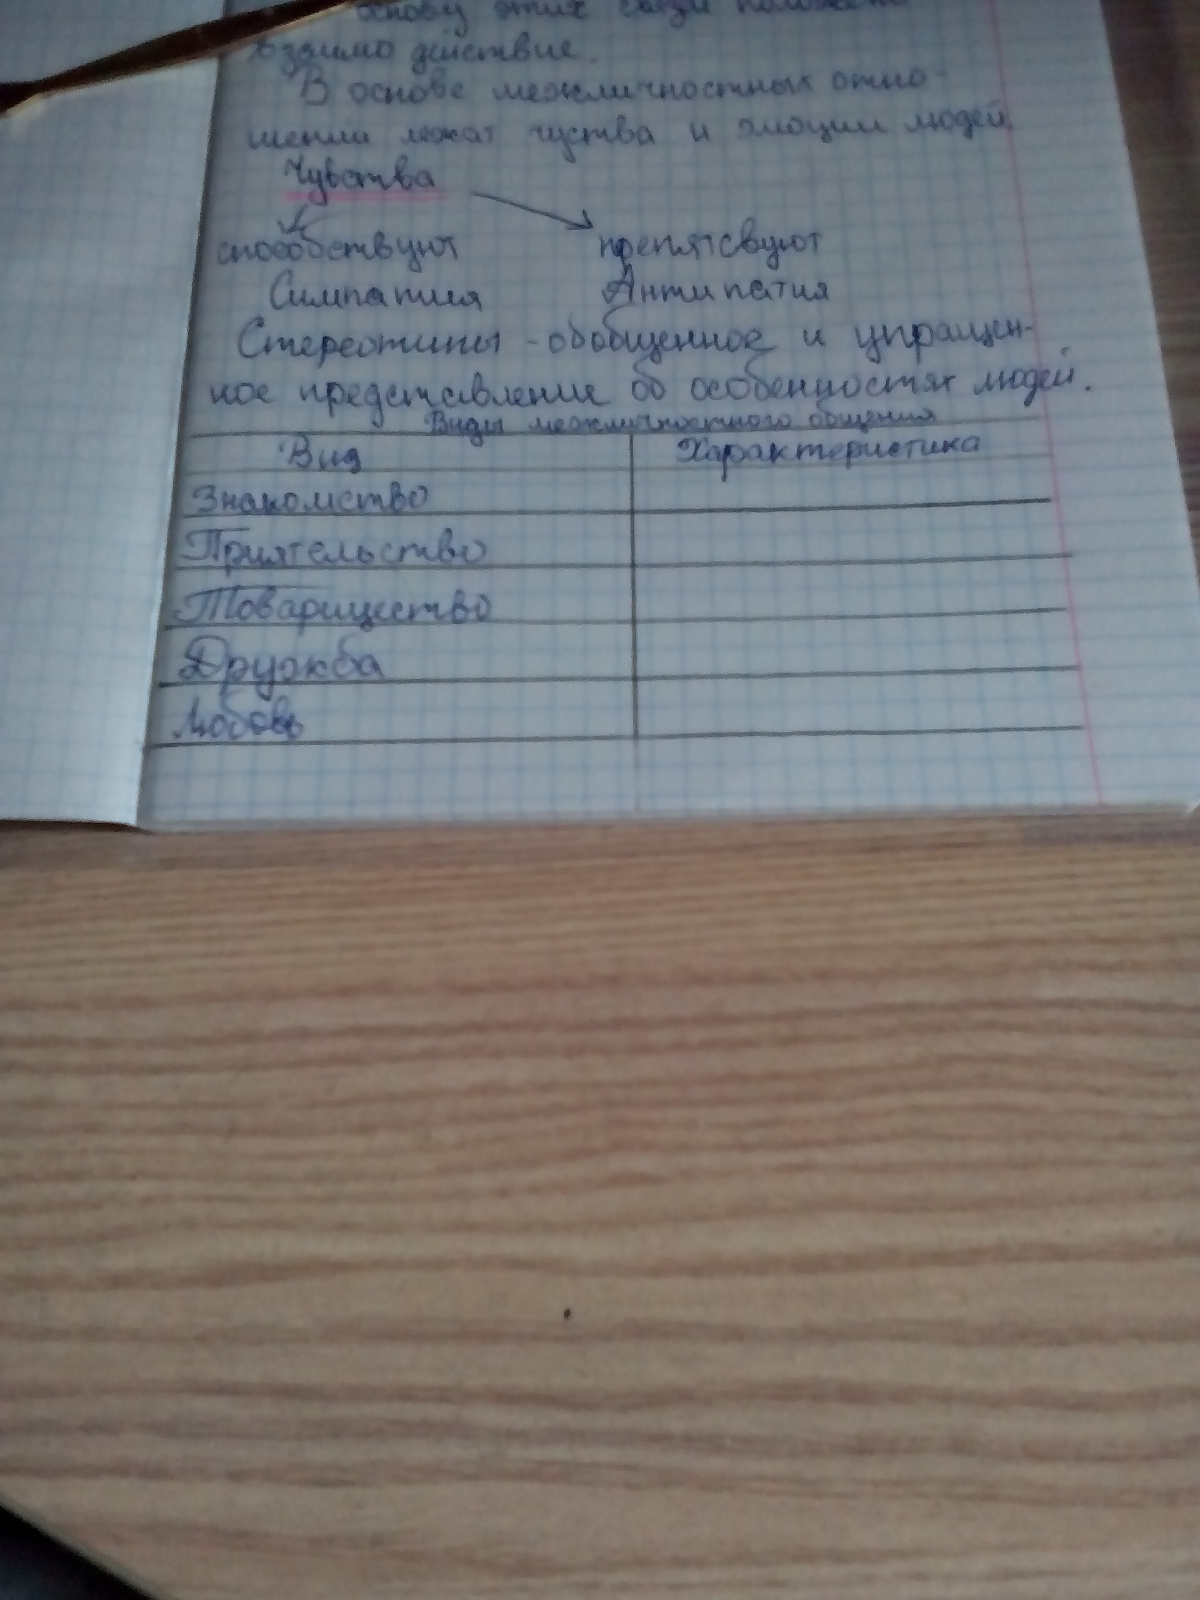 основу этих связи положено
взаимо действие.
В основе межличностных отно-
шений лежат чуства и эмоции людей
Чувства
способствуют препятсвуют
Симпатия Антипатия
Стереотипы - обобщенное и упращен-
ное представление об особенностях людей.
Виды межличностного общения
Вид Характеристика
Знакомство
Приятельство
Товарищество
Дружба
Любовь